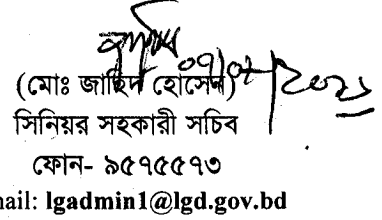 (মোঃ জাহিদ হোসেন)
সিনিয়র সহকারী সচিব
ফোন- ৯৫৭৫৫৭৩
nail: lgadmin1@lgd.gov.bd